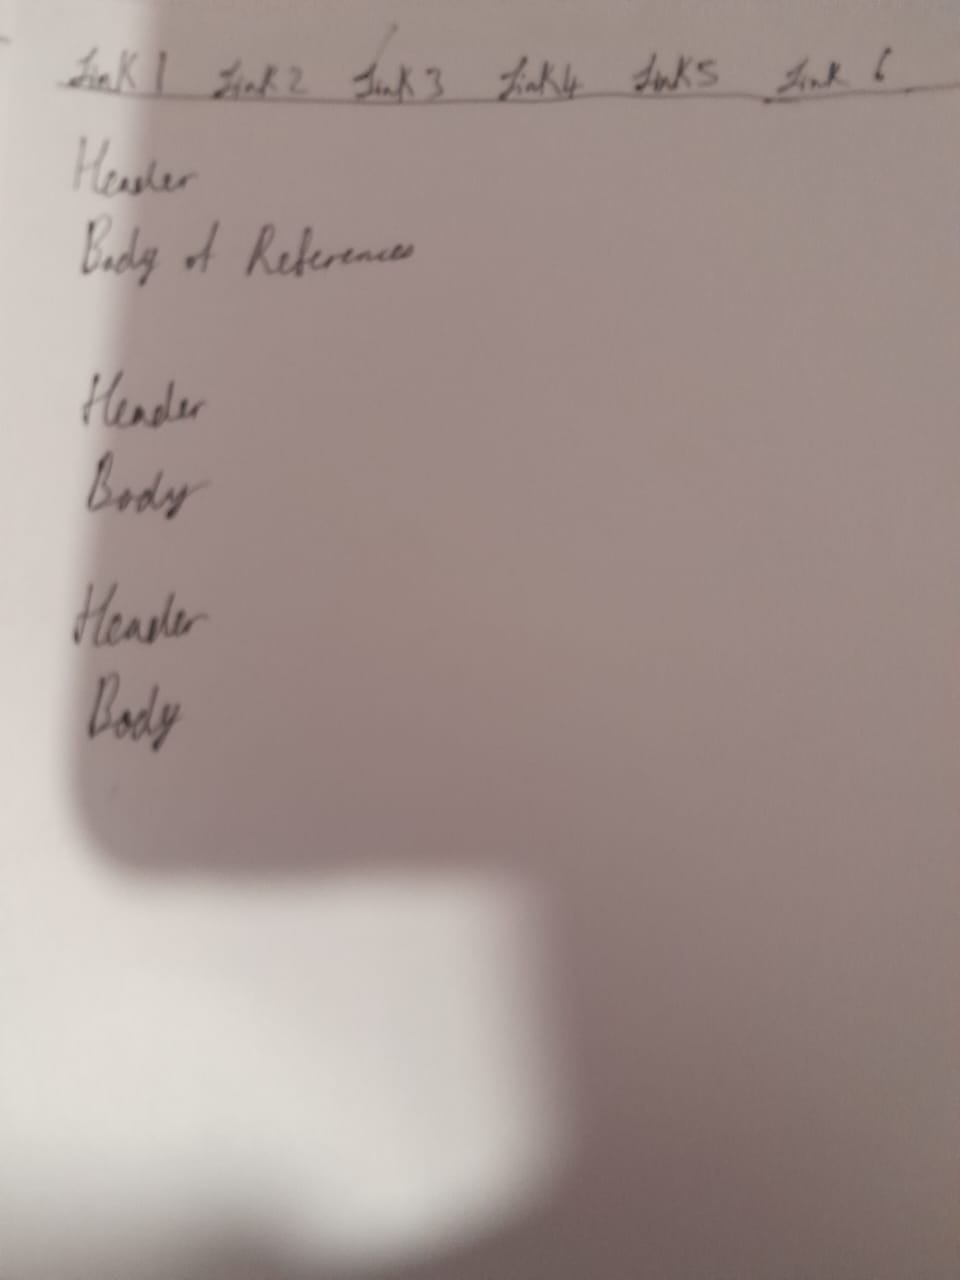 Link 1 Link 2 Link 3 Link 4 Link 5 Link 6
Header
Body of References
Header
Body
Header
Body